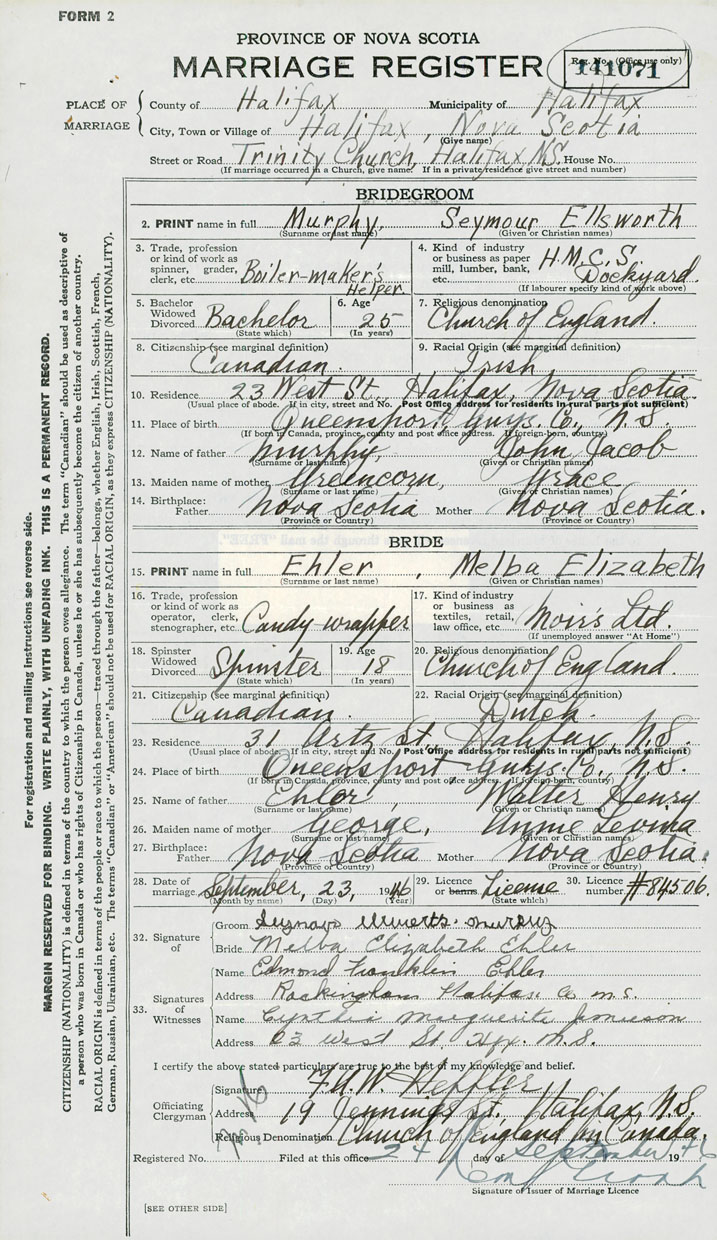 FORM 2
PROVINCE OF NOVA SCOTIA
MARRIAGE REGISTER
Reg. No. (Office use only)
141071
PLACE OF MARRIAGE
County of Halifax Municipality of Halifax
City, Town or Village of Halifax, Nova Scotia
(Give name)
Street or Road Trinity Church, Halifax N.S. House No.
(If marriage occurred in a Church, give name. If in a private residence give street and number)
BRIDEGROOM
2. PRINT name in full Murphy, Seymour Ellsworth
(Surname or last name) (Given or Christian names)
3. Trade, profession or kind of work as spinner, grader, clerk, etc. Boiler-maker's Helper
4. Kind of industry or business as paper mill, lumber, bank, etc. H.M.C.S. Dockyard.
(If labourer specify kind of work above)
5. Bachelor Widowed Divorced Bachelor
(State which)
6. Age 25
(In years)
7. Religious denomination
Church of England.
8. Citizenship (see marginal definition)
Canadian.
9. Racial Origin (see marginal definition)
Irish
10. Residence 23 West St., Halifax, Nova Scotia.
(Usual place of abode. If in city, street and No. Post Office address for residents in rural parts not sufficient)
11. Place of birth Queensport, Guys. Co., N.S.
(If born in Canada, province, county and post office address. If foreign-born, country)
12. Name of father Murphy, John Jacob
(Surname or last name) (Given or Christian names)
13. Maiden name of mother Greencorn, Grace
(Surname or last name) (Given or Christian names)
14. Birthplace: Father Nova Scotia Mother Nova Scotia.
(Province or Country) (Province or Country)
BRIDE
15. PRINT name in full Ehler, Melba Elizabeth
(Surname or last name) (Given or Christian names)
16. Trade, profession or kind of work as operator, clerk, stenographer, etc. Candy wrapper
17. Kind of industry or business as textiles, retail, law office, etc. Moir's Ltd.
(If unemployed answer "At Home")
18. Spinster Widowed Divorced Spinster
(State which)
19. Age 18
(In years)
20. Religious denomination
Church of England.
21. Citizenship (see marginal definition)
Canadian.
22. Racial Origin (see marginal definition)
Dutch.
23. Residence 31 Artz St., Halifax, N.S.
(Usual place of abode. If in city, street and No. Post Office address for residents in rural parts not sufficient)
24. Place of birth Queensport Guys. Co., N.S.
(If born in Canada, province, county and post office address. If foreign-born, country)
25. Name of father Ehler, Walter Henry
(Surname or last name) (Given or Christian names)
26. Maiden name of mother George, Annie Levina
(Surname or last name) (Given or Christian names)
27. Birthplace: Father Nova Scotia Mother Nova Scotia.
(Province or Country) (Province or Country)
28. Date of marriage September, 23, 1946
(Month by name) (Day) (Year)
29. Licence or banns License
(State which)
30. Licence number #84506.
32. Signature of
Groom Murphy
Bride Melba Elizabeth Ehler
33. Signatures of Witnesses
Name Edmond Franklin Ehler
Address Rockingham Halifax Co n.s.
Name Cynthia Marguerite Jamieson
Address 23 West St. Hfx. N.S.
I certify the above stated particulars are true to the best of my knowledge and belief.
Officiating Clergyman
Signature F.A.W. Heffler
Address 19 Jennings St. Halifax, N.S.
Religious Denomination Church of England in Canada.
Registered No. Filed at this office 24 day of September 1946
Signature of Issuer of Marriage Licence
[SEE OTHER SIDE]
For registration and mailing instructions see reverse side.
MARGIN RESERVED FOR BINDING. WRITE PLAINLY, WITH UNFADING INK. THIS IS A PERMANENT RECORD.
CITIZENSHIP (NATIONALITY) is defined in terms of the country to which the person owes allegiance. The term "Canadian" should be used as descriptive of
a person who was born in Canada or who has rights of Citizenship in Canada, unless he or she has subsequently become the citizen of another country.
RACIAL ORIGIN is defined in terms of the people or race to which the person—traced through the father—belongs, whether English, Irish, Scottish, French,
German, Russian, Ukrainian, etc. The terms "Canadian" or "American" should not be used for RACIAL ORIGIN, as they express CITIZENSHIP (NATIONALITY).